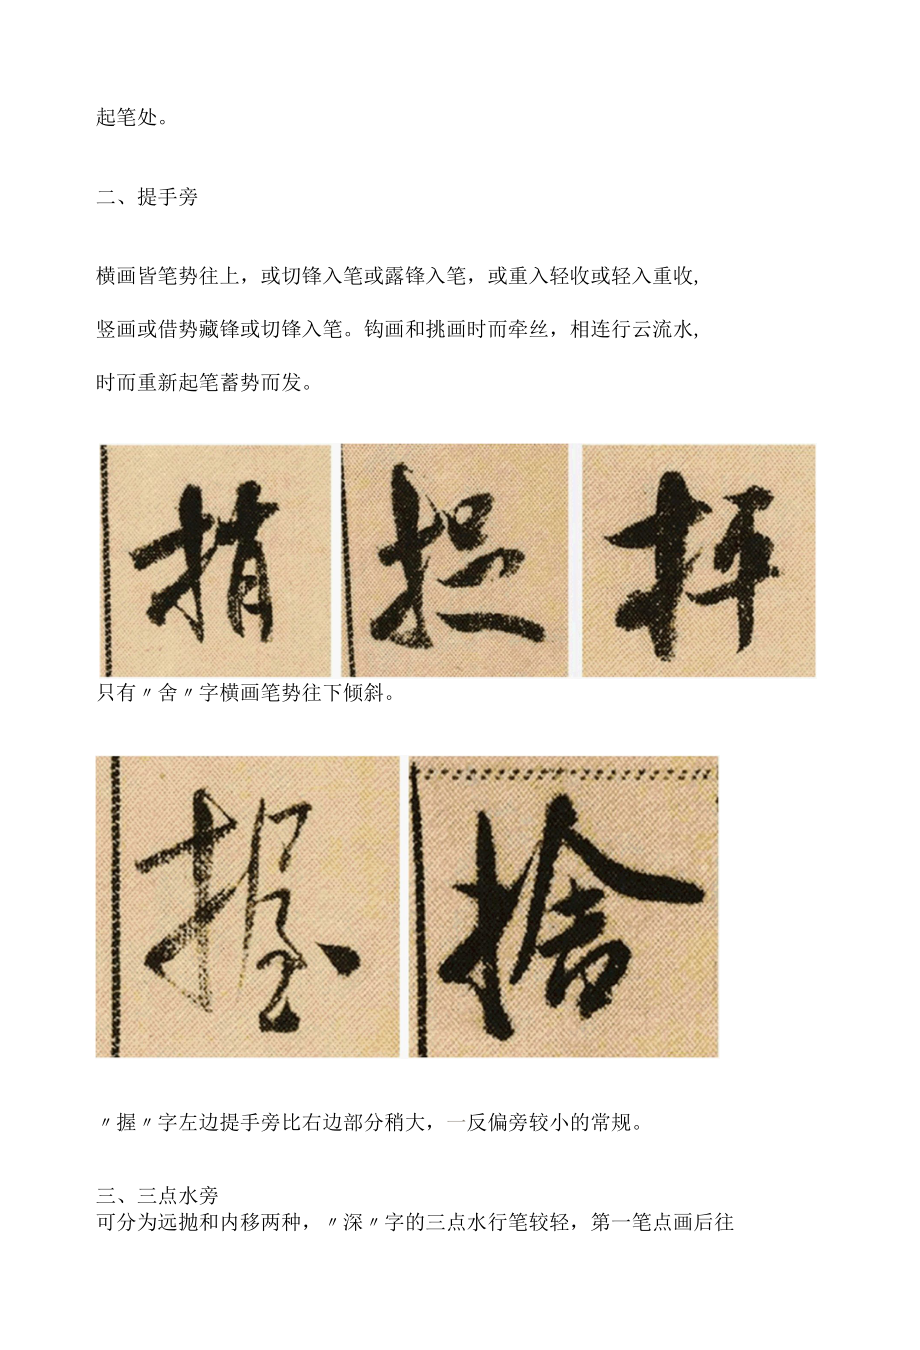 起笔处。
二、提手旁
横画皆笔势往上，或切锋入笔或露锋入笔，或重入轻收或轻入重收,
竖画或借势藏锋或切锋入笔。钩画和挑画时而牵丝，相连行云流水,
时而重新起笔蓄势而发。
捎 捉 抨
只有〃舍〃字横画笔势往下倾斜。
握 捨
〃握〃字左边提手旁比右边部分稍大，一反偏旁较小的常规。
三、三点水旁
可分为远抛和内移两种，〃深〃字的三点水行笔较轻，第一笔点画后往